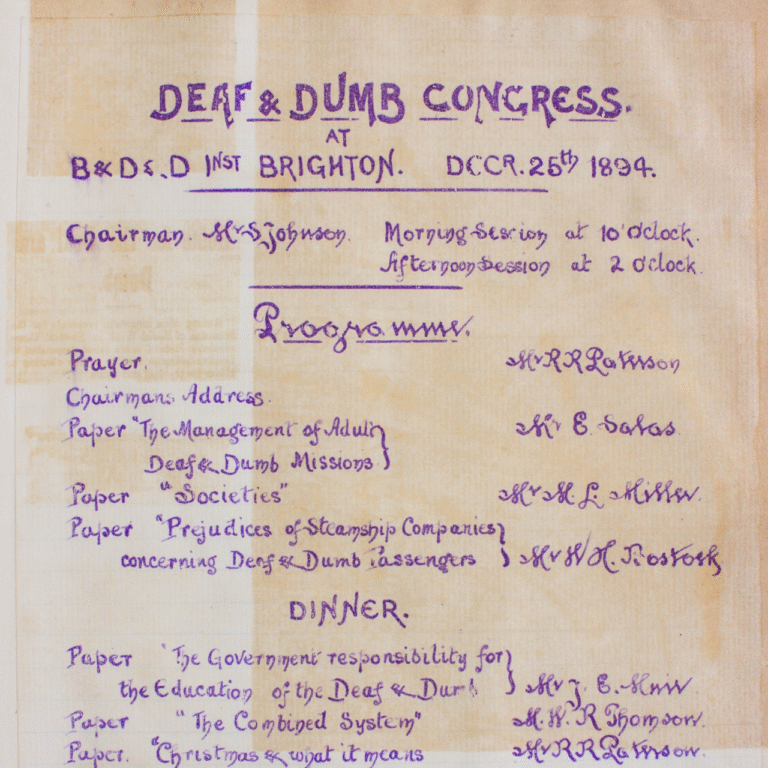 DEAF & DUMB CONGRESS.
AT
B & D & D INST BRIGHTON. DCCR. 26th 1894.
Chairman. Mr S Johnson. Morning Session at 10 o'clock.
Afternoon Session at 2 o'clock.
Programme.
Prayer. Mr R R Paterson
Chairmans Address.
Paper "The Management of Adult Mr E. Salas.
Deaf & Dumb Missions
Paper "Societies" Mr M. L. Miller.
Paper "Prejudices of Steamship Companies
concerning Deaf & Dumb Passengers Mr W H. Rostock
DINNER.
Paper "The Government responsibility for
the Education of the Deaf & Dumb Mr J. E. Muir
Paper "The Combined System" M. W. R Thomson.
Paper. "Christmas & what it means Mr R R Paterson.